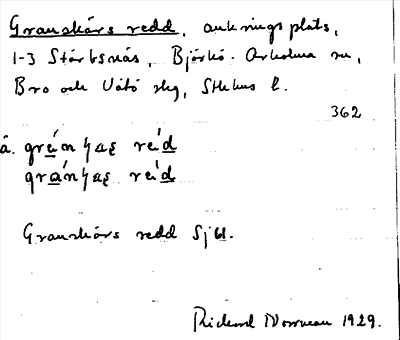 Granskärs redd, ankringsplats,
1-3 Storbsnäs, Björkö-Arholma sn,
Bro och Vätö slg, Sthlms l.
362
a. grán red
grán red
Granskärs redd Sjkt.
Rickard Norman 1929.